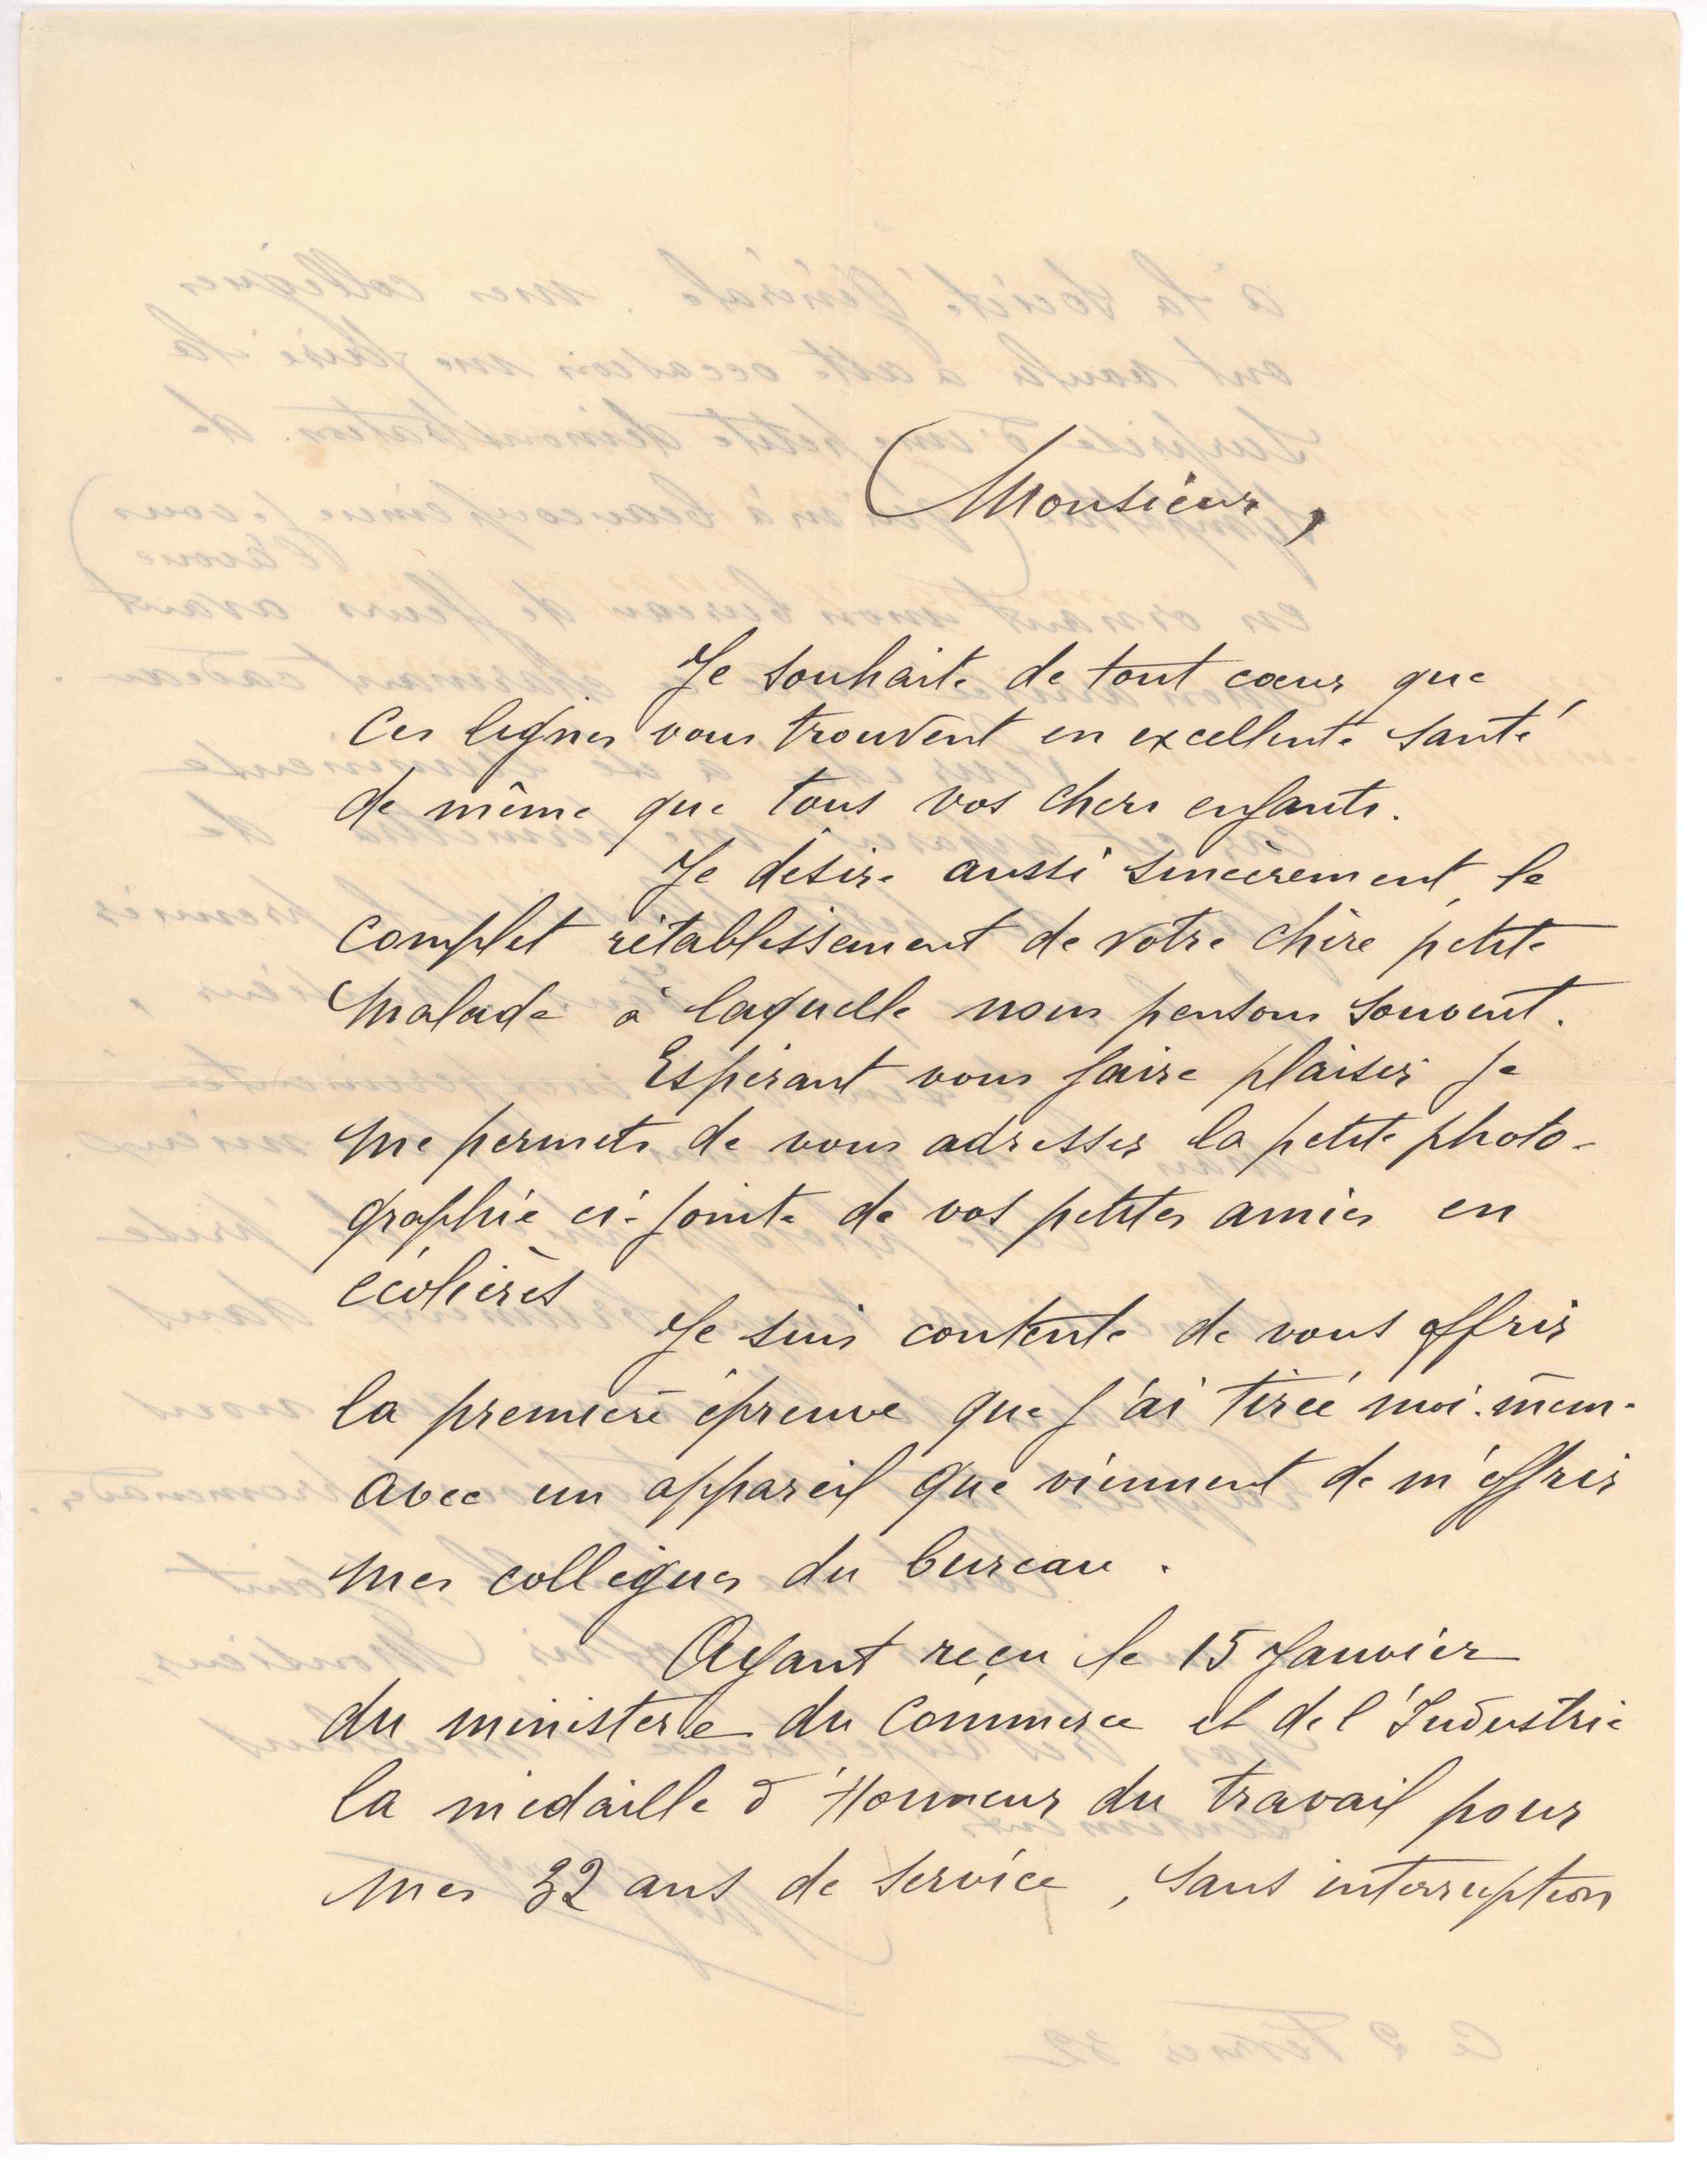 Monsieur,
Je souhaite de tout cœur que
ces lignes vous trouvent en excellente santé
de même que tous vos chers enfants.
Je désire aussi sincèrement le
complet rétablissement de votre chère petite
malade à laquelle nous pensons souvent.
Espérant vous faire plaisir je
me permets de vous adresser la petite photo-
graphie ci-jointe de vos petites amies en
écolières
Je suis contente de vous offrir
la première épreuve que j'ai tirée moi-même
avec un appareil que viennent de m'offrir
mes collègues du bureau.
Ayant reçu le 15 Janvier
du ministère du Commerce et de l'Industrie
la médaille d'Honneur du travail pour
mes 32 ans de service, sans interruption